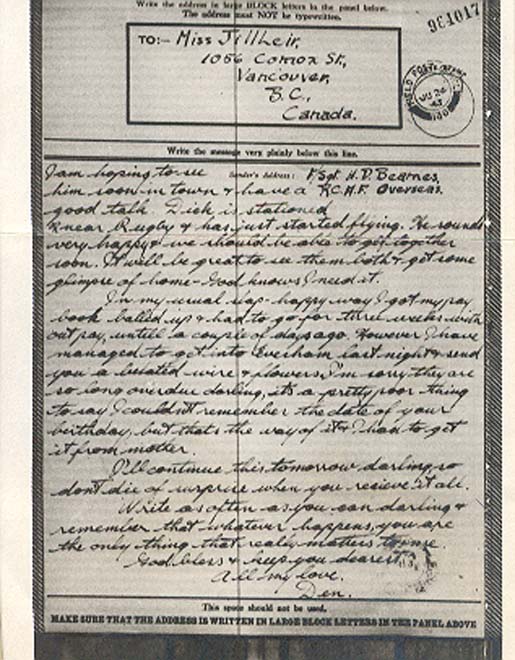 Write the address in large BLOCK letters in the panel below.
The address must NOT be typewritten.
981017
TO:- Miss Jill Leir,
1056 Comox St,
Vancouver,
B.C.,
Canada.
FIELD POST OFFICE
JU 24
43
Write the message very plainly below this line.
Sender's Address: F/Sgt. H. D. Beames,
R.C.A.F. Overseas.
I am hoping to see
him soon in town & have a
good talk. Dick is stationed
near Rugby & has just started flying. He sounds
very happy & we should be able to get together
soon. It will be great to see them both & get some
glimpse of home - God knows I need it.
In my usual slap-happy way I got my pay
book balled up & had to go for three weeks with
out pay, untill a couple of days ago. However I have
managed to get into Evesham last night & send
you a belated wire & flowers. I'm sorry they are
so long overdue darling, it's a pretty poor thing
to say I couldn't remember the date of your
birthday, but that's the way of it & I had to get
it from mother.
I'll continue this tomorrow darling, so
don't die of surprise when you recieve it all.
Write as often as you can darling &
remember that whatever happens, you are
the only thing that really matters to me.
God bless & keep you dearest.
All my love.
Den.
This space should not be used.
MAKE SURE THAT THE ADDRESS IS WRITTEN IN LARGE BLOCK LETTERS IN THE PANEL ABOVE